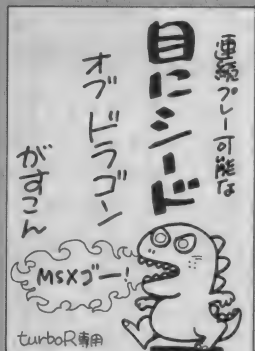 連続プレー可能な
目にシード
オブ ドラゴン
がすこん
MSXゴー!
turboR専用